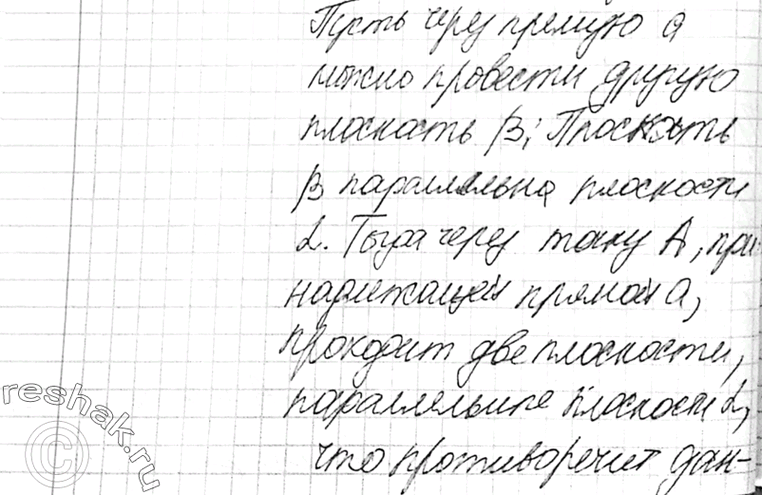 Пусть через прямую a
можно провести другую
плоскость β; Плоскость
β параллельна плоскости
α. Тогда через точку A, при-
надлежащей прямой a,
проходит две плоскости,
параллельные плоскости α,
что противоречит дан-
reshak.ru
©